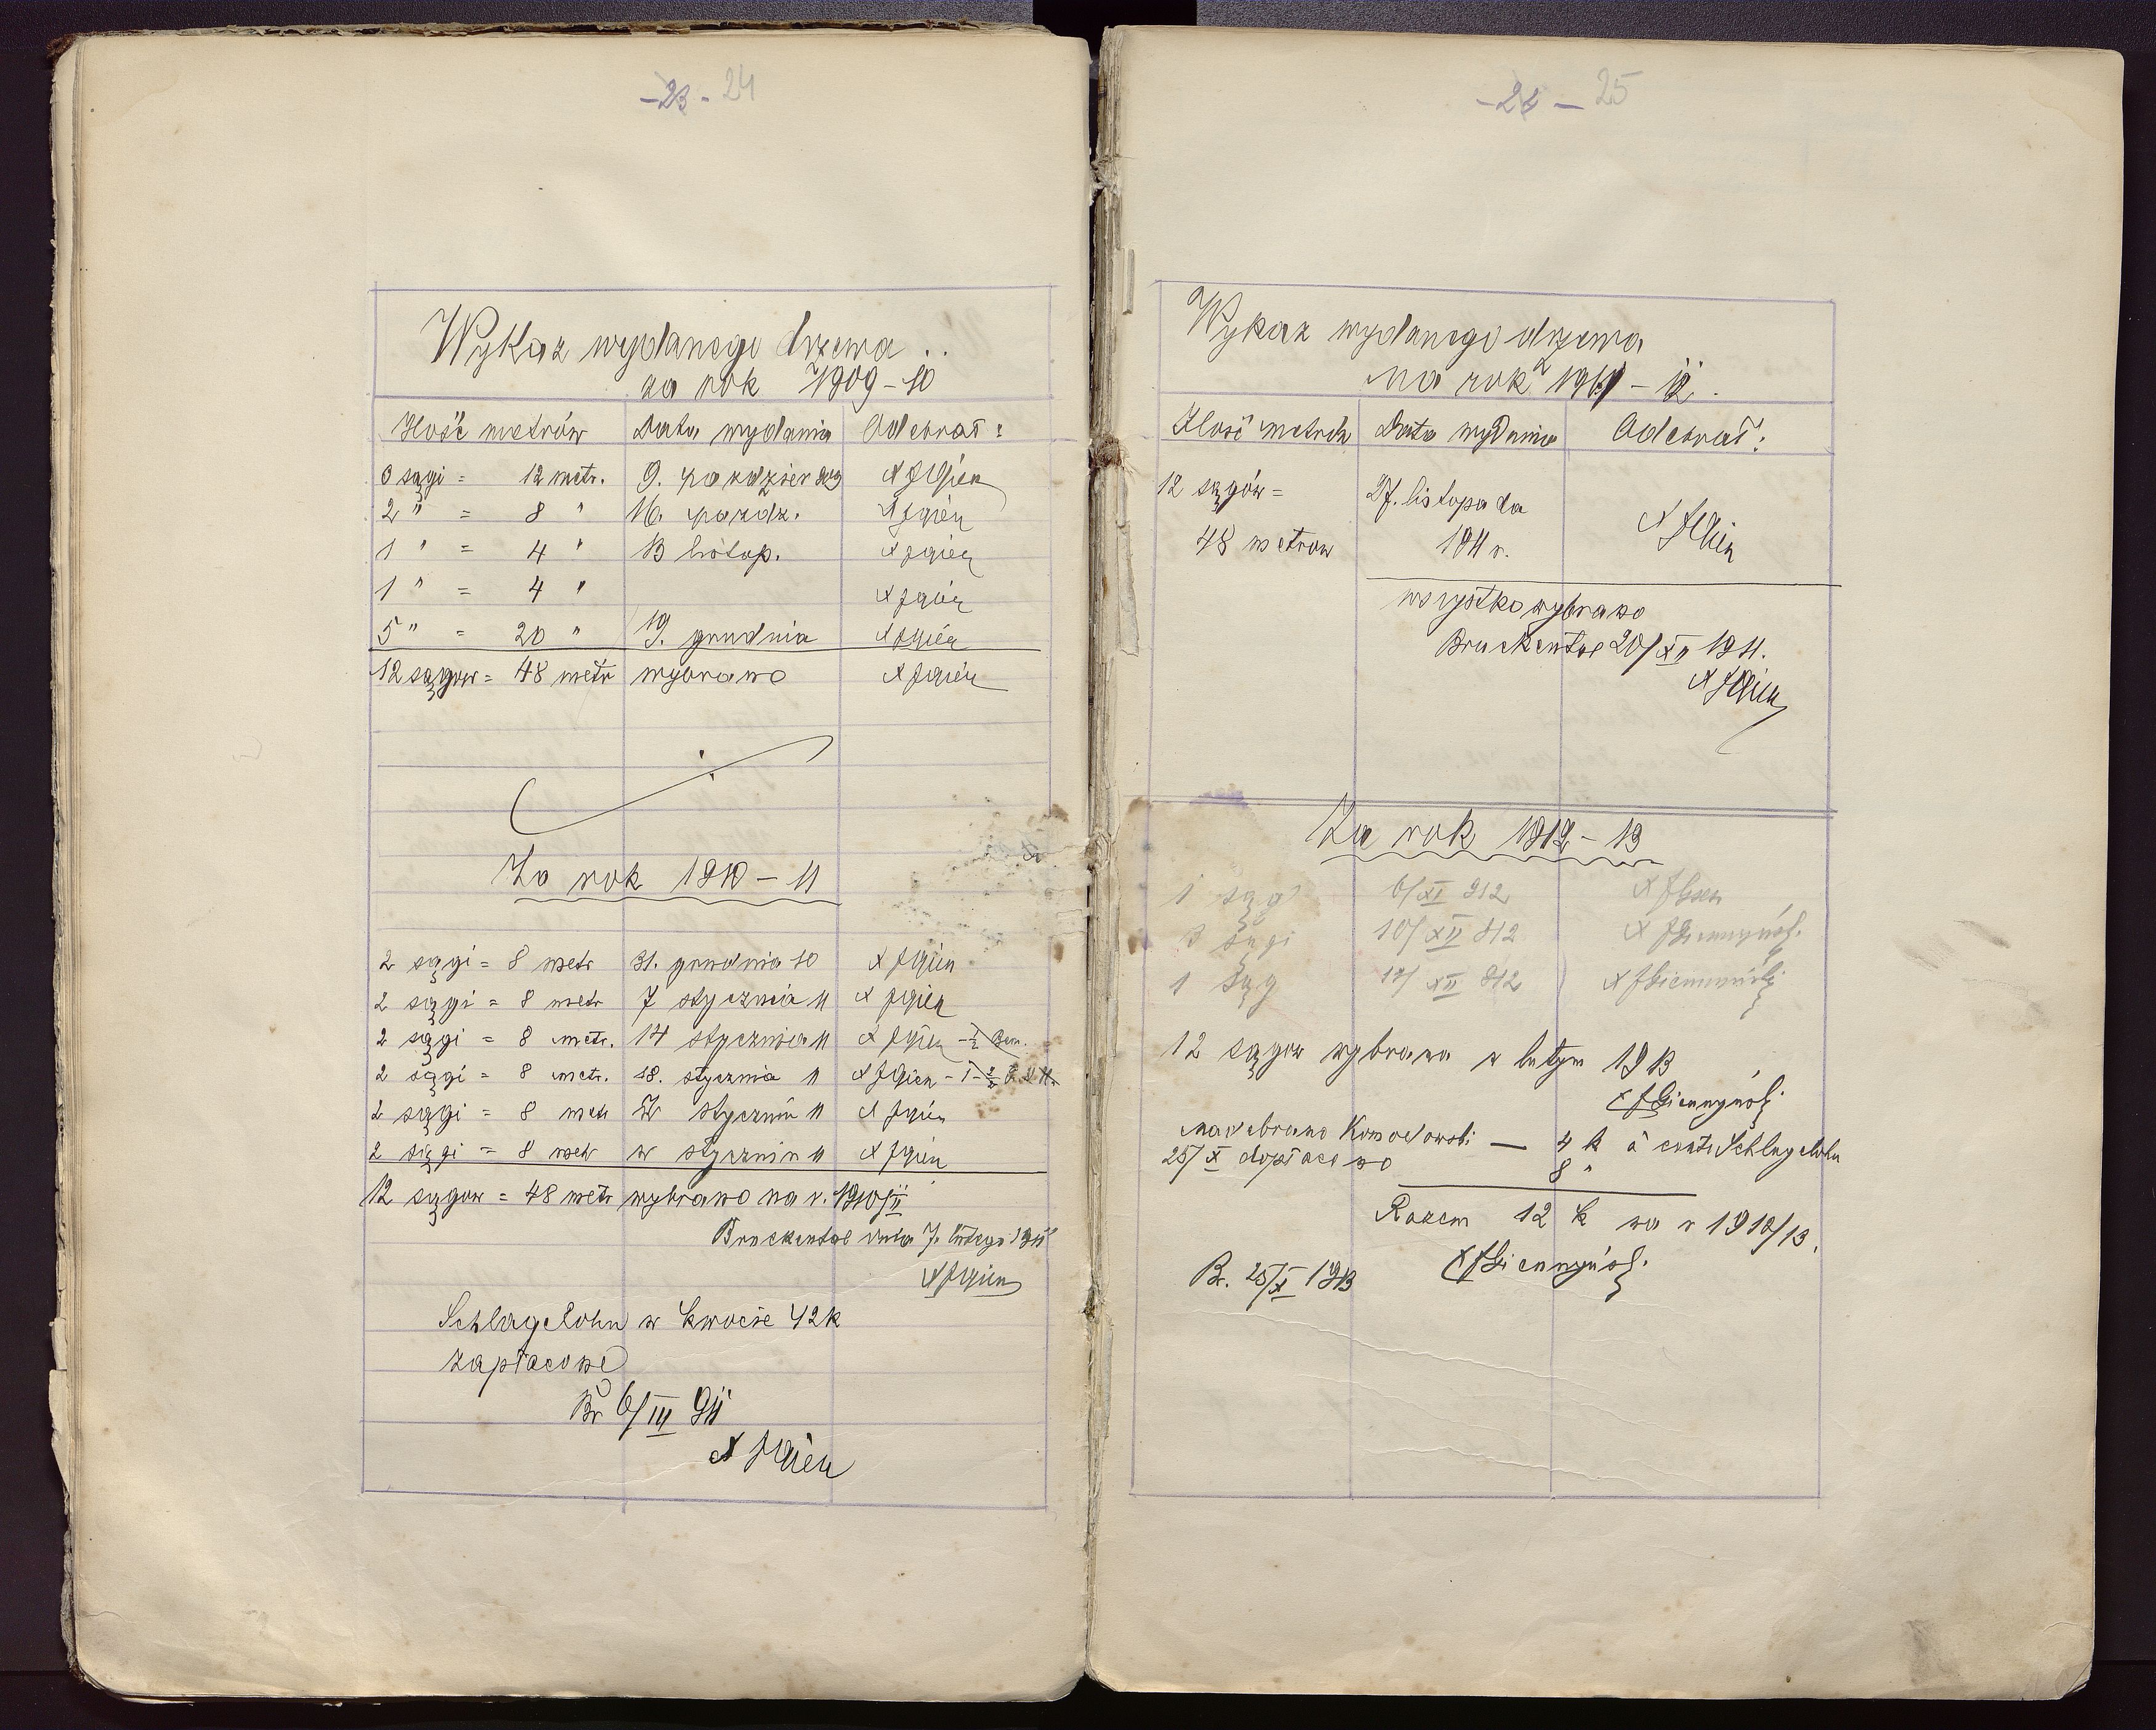 -23- 24
Wykaz wydanego drzewa
za rok 1909-10
Ilość metrów Data wydania Odebrał:
3 sągi = 12 metr. 9. paździer 909
2 " = 8 " 16. paźdz.
1 " = 4 " 13 listop.
1 " = 4 "
5 " = 20 " 19. grudnia
12 sągow = 48 metr wybrano
Za rok 1910-11
2 sągi = 8 metr 31. grudnia 10
2 sągi = 8 metr 7 stycznia 11
2 sągi = 8 metr. 14 stycznia 11
2 sągi = 8 metr. 18. stycznia 11
2 sągi = 8 metr stycznia 11
2 sągi = 8 metr w styczniu 11
12 sągow = 48 metr wybrano na r. 1910/11
Bruckental dnia 7. lutego 1911
Schlagelohn w kwocie 42k
zapłacone
Br 6/III 911
- 24 - 25
Wykaz wydanego drzewa
na rok 1911-12.
Ilość metrów Data wydania Odebrał:
12 sągów = 27. listopada
48 metrow 1911 r.
wszystko wybrano
Bruckental 20/XII 1911.
Za rok 1912-13
1 sąg 6/XI 912
3 sągi 10/XII 912
1 sąg /XII 912
12 sągow wybrano w lutym 1913
4 k à conto Schlagelohn
25/X dopłacono 8 "
Razem 12 k za r 1912/13.
Br. 25/X 1913